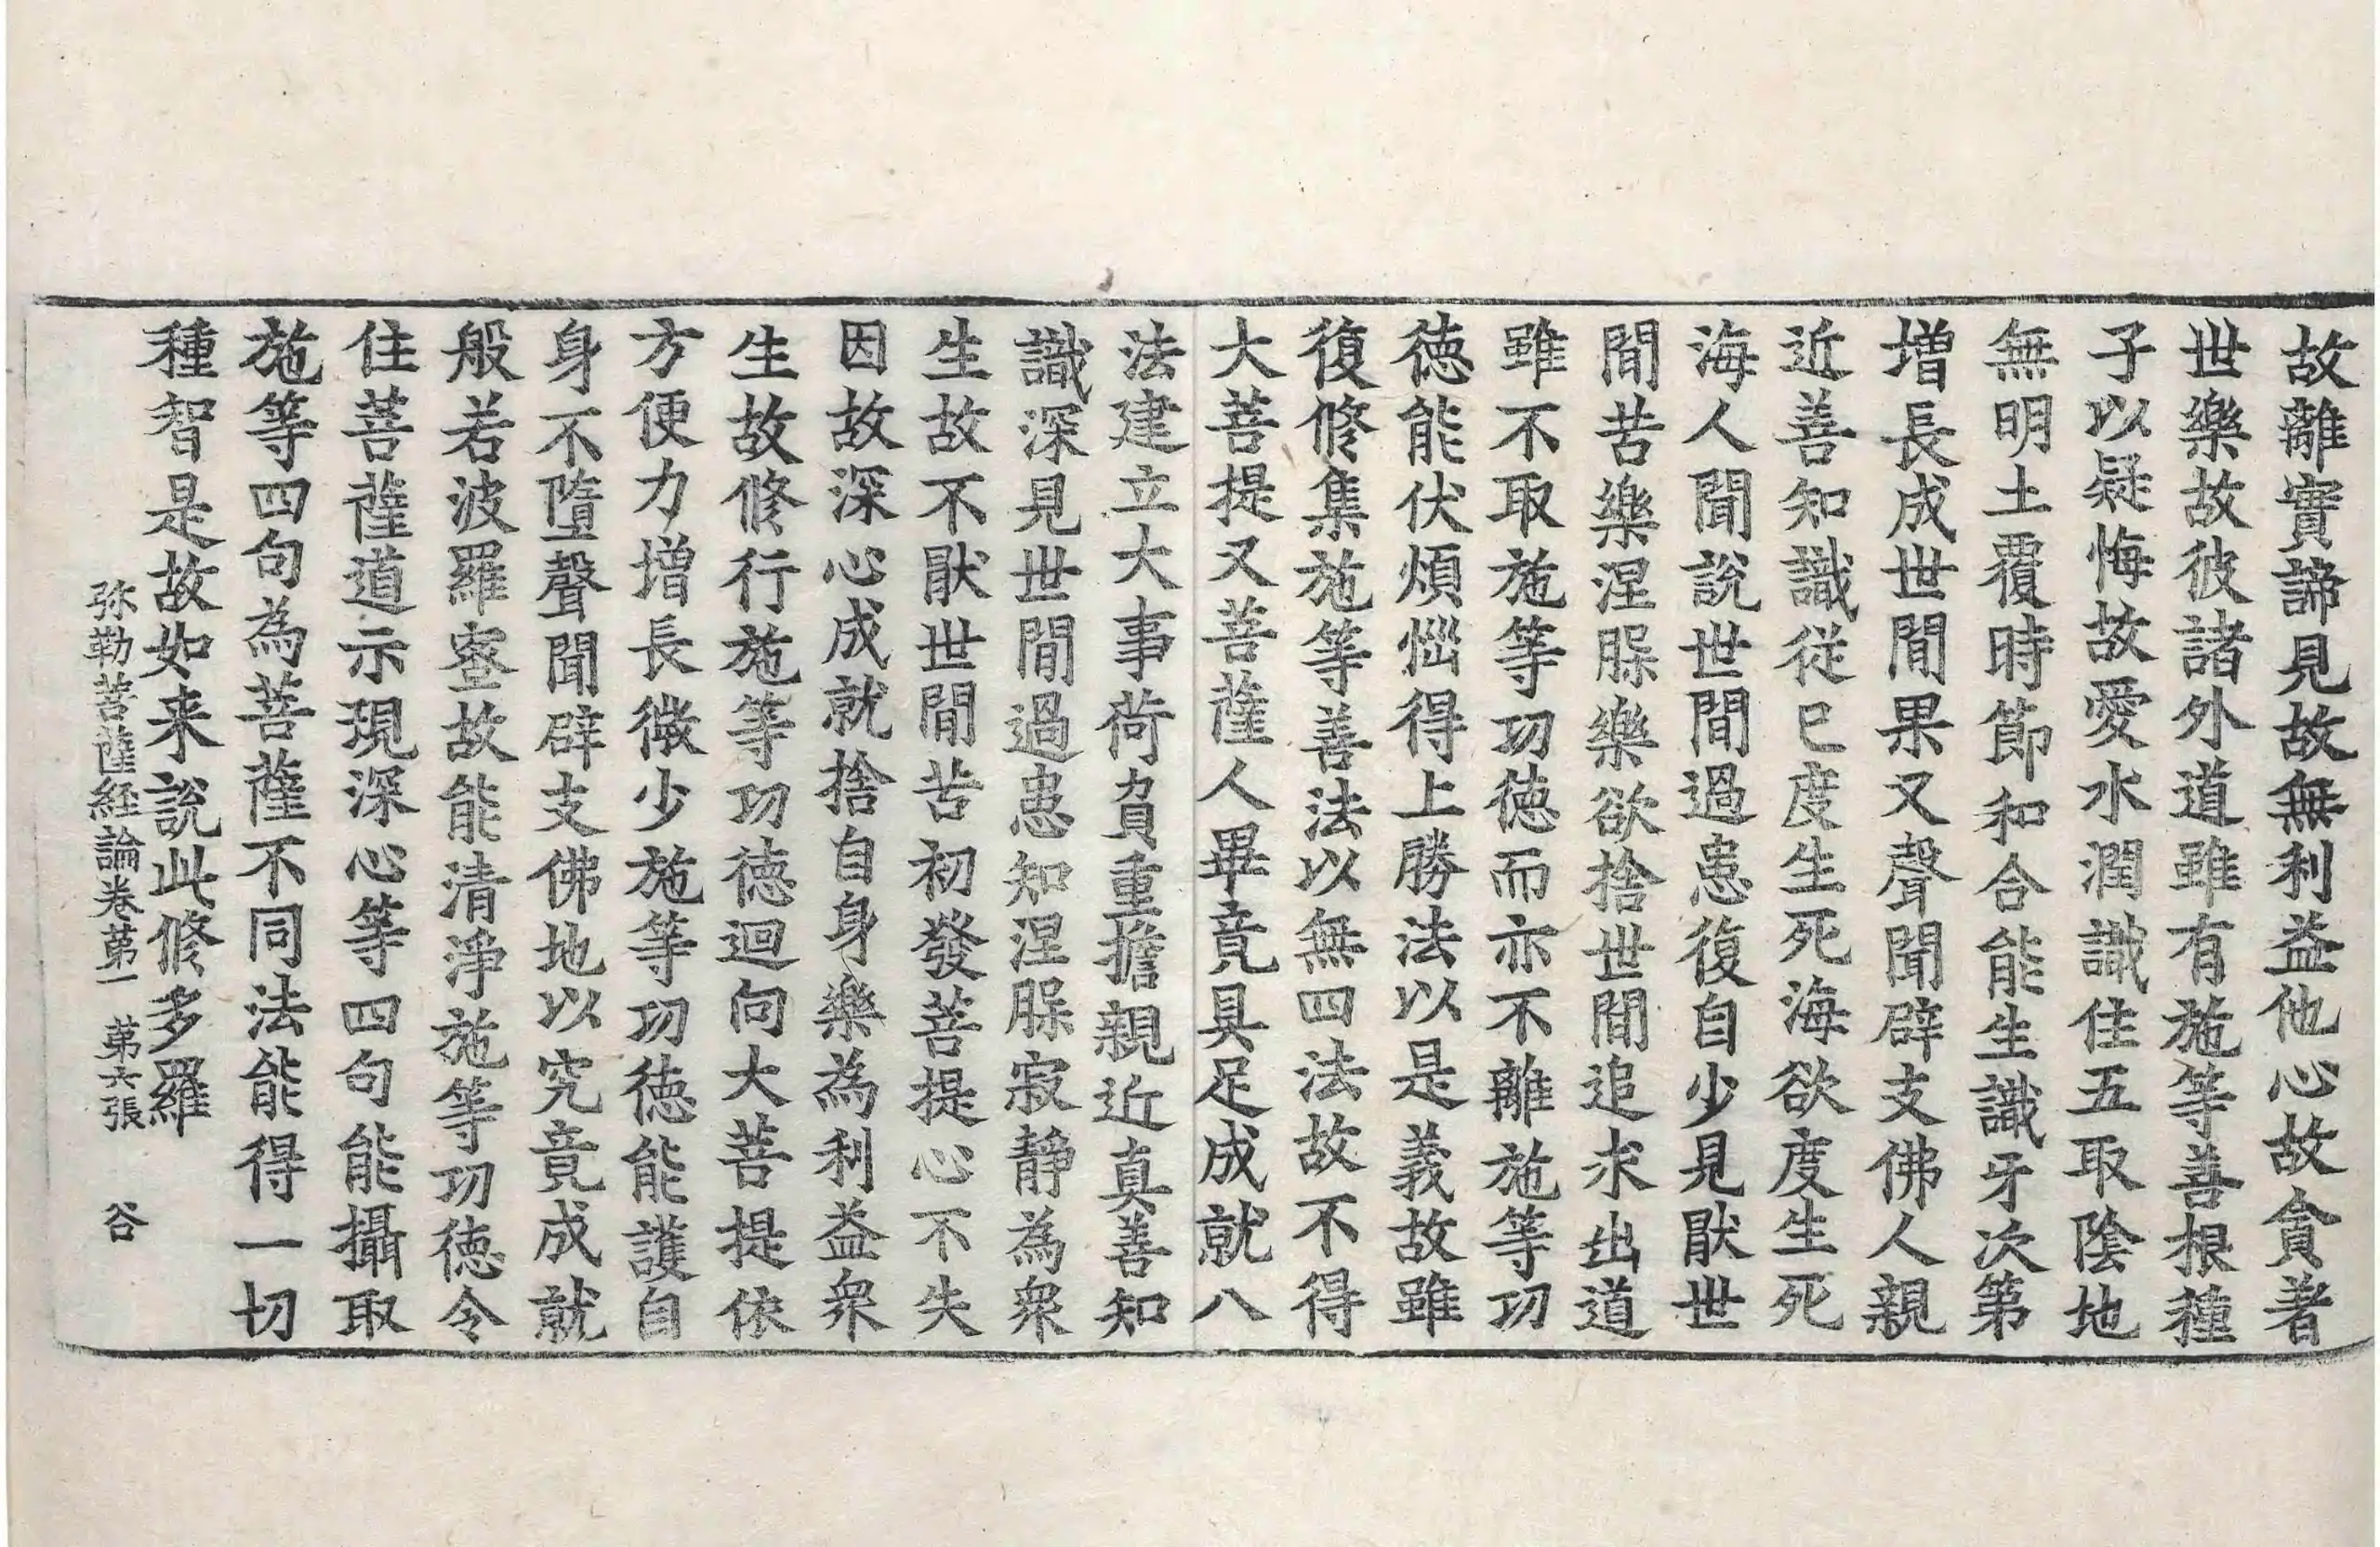 故離實諦見故無利益他心故貪著
世樂故彼諸外道雖有施等善根種
子以疑悔故愛水潤識住五取陰地
無明土覆時節和合能生識牙次第
增長成世間果又聲聞辟支佛人親
近善知識從已度生死海欲度生死
海人聞說世間過患復自少見猒世
間苦樂涅槃樂欲捨世間追求出道
雖不取施等功徳而亦不離施等功
徳能伏煩惱得上勝法以是義故雖
復修集施等善法以無四法故不得
大菩提又菩薩人畢竟具足成就八
法建立大事荷負重擔親近真善知
識深見世間過患知涅槃寂靜為衆
生故不猒世間苦初發菩提心不失
因故深心成就捨自身樂為利益衆
生故修行施等功徳迴向大菩提依
方便力增長微少施等功徳能護自
身不墮聲聞辟支佛地以究竟成就
般若波羅蜜故能清淨施等功徳令
住菩薩道示現深心等四句能攝取
施等四句為菩薩不同法能得一切
種智是故如来說此修多羅
弥勒菩薩経論卷苐一 苐六張 谷